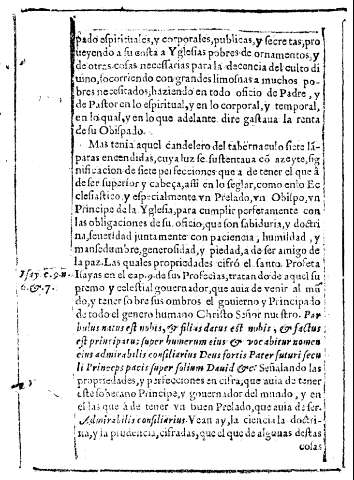 pado espirituales, y corporales, publicas, y secretas, pro
ueyendo a su costa a Yglesias pobres de ornamentos, y
de otras cosas necessarias para la decencia del culto di
uino, socorriendo con grandes limosnas a muchos po
bres necesitados, haziendo en todo oficio de Padre, y
de Pastor en lo espiritual, y en lo corporal, y temporal,
en lo qual, y en lo que adelante dire gastaua la renta
de su Obispado.
Mas tenia aquel candelero del tabernaculo siete lã
paras encendidas, cuya luz se sustentaua cõ azeyte, sig
nificacion de siete perfecciones que a de tener el que à
de ser superior y cabeça, assi en lo seglar, como en lo Ec
clesiastico, y especialmente vn Prelado, vn Obispo, vn
Principe de la Yglesia, para cumplir perfetamente con
las obligaciones de su oficio, que son sabiduria, y doctri
na, seueridad juntamente con paciencia, humildad, y
mansedumbre, generosidad, y piedad, a de ser amigo de
la paz. Las quales propiedades cifrò el santo Profeta
Isay. c. 9. n. Isaias en el cap. 9. de sus Profecias, tratando de aquel su
6. & 7. premo y celestial gouernador, que auia de venir al mũ
do, y tener sobre sus ombros el gouierno y Principado
de todo el genero humano Christo Señor nuestro. Par
bulus natus est nobis, & filius datus est nobis, & factus
est principatus super humerum eius & vocabitur nomen
eius admirabilis consiliarius Deus fortis Pater futuri secu
li Princeps pacis super solium Dauid &c. Señalando las
propriedades, y perfecciones en cifra, que auia de tener
este soberano Principe, y gouernador del mundo, y en
el las que à de tener vn buen Prelado, que auia de ser.
Admirabilis consiliarius. Vean ay, la ciencia la doctri
na, y la prudencia, cifradas, que el que de algunas destas
cosas